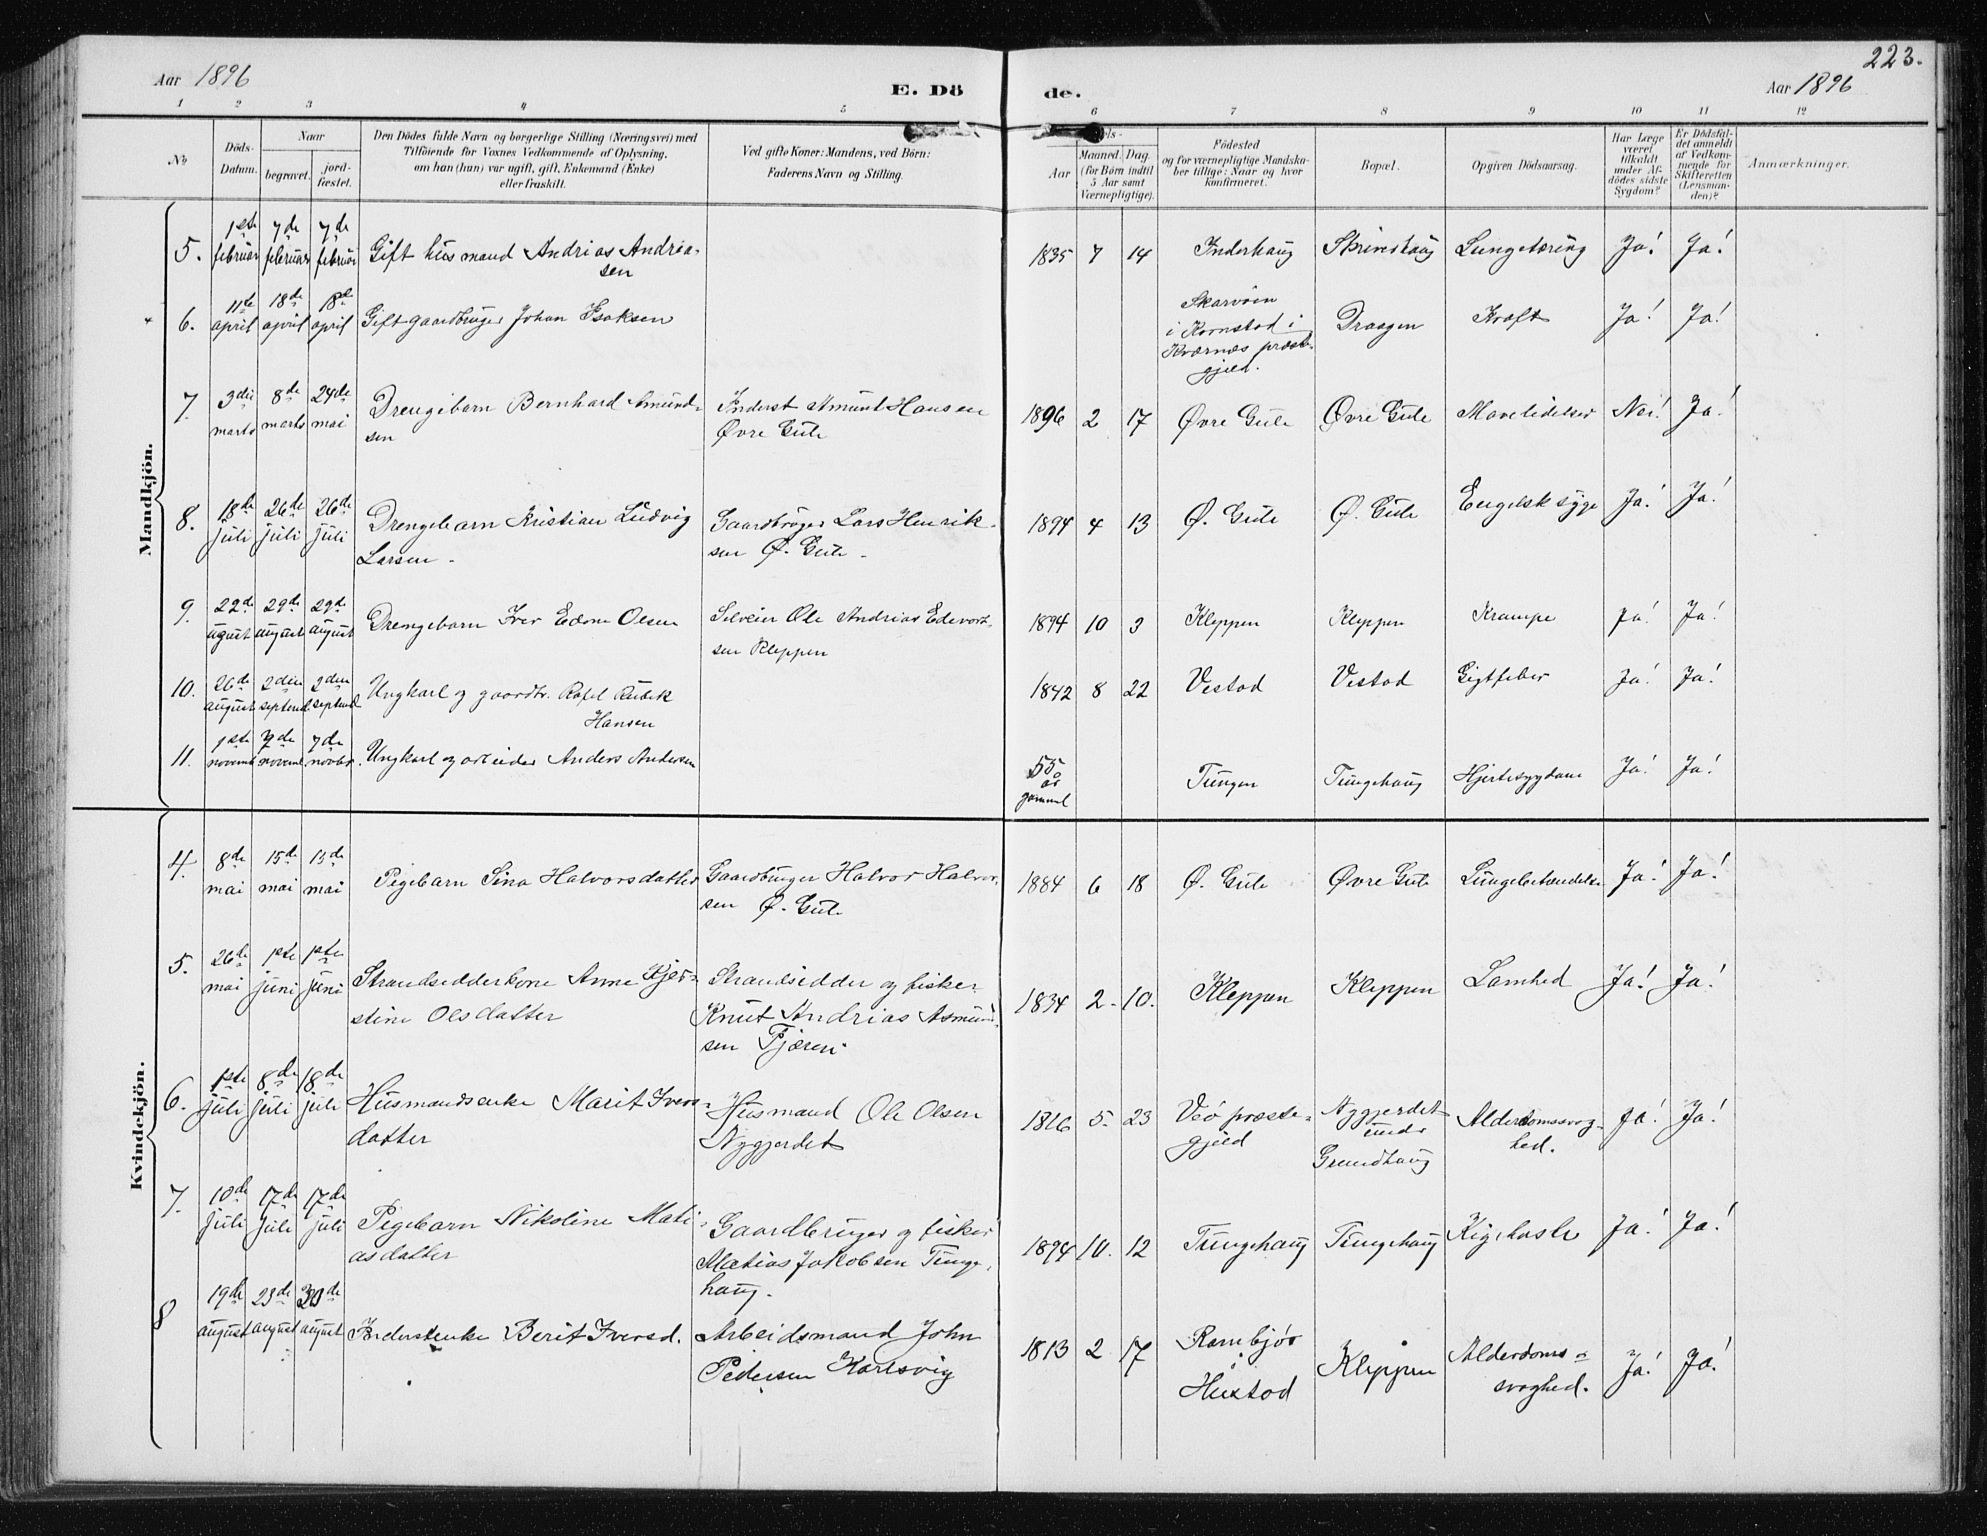 223.
Aar 1896
E. Dö de.
Aar 1896
1 2 3 4 5 6 7 8 9 10 11 12
No
Döds-Datum.
Naar
begravet.
jord-fæstet.
Den Dödes fulde Navn og borgerlige Stilling (Næringsvei) med
Tilföiende for Voxnes Vedkommende af Oplysning,
om han (hun) var ugift, gift, Enkemand (Enke)
eller fraskilt.
Ved gifte Koner: Mandens, ved Börn:
Faderens Navn og Stilling.
els-
Aar
Maaned. Dag.
(for Börn indtil
5 Aar samt
Værnepligtige).
Födested
og for værnepligtige Mandska-
ber tillige: Naar og hvor
konfirmeret.
Bopæl.
Opgiven Dödsaarsag.
Har Læge
været
tilkaldt
under Af-
dödes sidste
Sygdom?
Er Dödsfal-
det anmeldt
af Vedkom-
mende for
Skifteretten
(Lensman-
den)?
Anmærkninger.
Mandkjön.
5. 1ste februar 7de februar 7de februar Gift husmand Andrias Andrea-
sen
1835 7 14 Inderhaug Skrinshaug Lungetæring Ja! Ja!
6. 11te april 18de april 18de april Gift gaardbruger Johan Isaksen
Skarvöen
i Kornstad i
Kværnæs præste-
gjeld.
Draagen Kræft Ja! Ja!
7. 3die marts 8de marts 24de mai Drengebarn Bernhard Amund-
sen
Inderst Amund Hansen
Øvre Gule
1896 2 17 Øvre Gule Øvre Gule Mavelidelser Nei! Ja!
8. 18de juli 26de juli 26de juli Drengebarn Kristian Ludvig
Larsen
Gaardbruger Lars Henrik-
sen Ø. Gule
1894 4 13 Ø. Gule Ø. Gule Engelsk syge Ja! Ja!
9. 22de august 29de august 29de august Drengebarn Iver Edone Olsen
Selveier Ole Andrias Edevart-
sen Kleppen
1894 10 3 Kleppen Kleppen Krampe Ja! Ja!
10. 26de august 2den septemb. 2den septemb. Ungkarl og gaardbr.
Hansen
1842 8 22 Vestad Vestad Gigtfeber Ja! Ja!
11. 1ste novemb. 7de novemb. 7de novbr. Ungkarl og arbeider Anders Andersen
55 år gammel Tungen Tungehaug Hjertesygdom Ja! Ja!
Kvindekjön.
4. 8de mai 15de mai 15de mai Pigebarn Sina Halvorsdatter
Gaardbruger Halvor Halvor-
sen Ø. Gule
1884 6 18 Ø. Gule Øvre Gule Lungebetændelse Ja! Ja!
5. 26de mai 1ste juni 1ste juni Strandsidderkone Anne Kjer-
stine Olsdatter
Strandsidder og fisker
Knut Andrias Asmund-
sen Fjæren
1834 2 10. Kleppen Kleppen Lamhed Ja! Ja!
6. 1ste juli 8de juli 18de juli Husmandsenke Marit Ivers-
datter
Husmand Ole Olsen
Nygjerdet
1816 5 23 Veö præste-
gjeld
Nygjerdet
under
Grundhaug
Alderdomssvag-
hed.
Ja! Ja!
7. 10de juli 17de juli 17de juli Pigebarn Nikoline Mati-
asdatter
Gaardbruger og fisker
Matias Jakobsen Tunge-
haug.
1894 10. 12 Tungehaug Tungehaug Kighoste Ja! Ja!
8 19de august 23de august 30de august Inderstenke Berit Iversd.
Arbeidsmand John
Pedersen Karlsvig
1813 2 17 Rambjör
i
Hustad
Kleppen Alderdoms-
svaghed.
Ja! Ja!